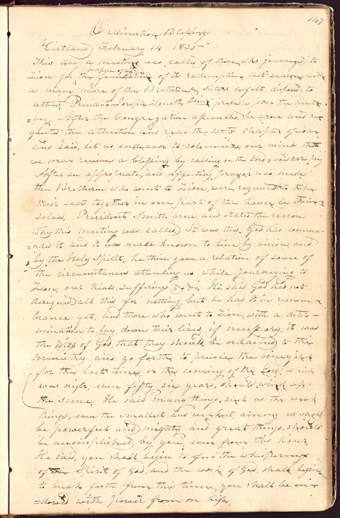 147
Ordination Blessings
Kirtland February 14 1835
This day a meeting was called of those who journeyed to
Zion for the purpose of its redemption last season with
as many more of the Brethren & Sisters as felt disposed to
attend. President Joseph Smith Junr presided over the meet-
ing. After the Congregation assembled he arose and re-
quested the attention and read the chapter of John
and said, let us endeavor to solemnize our minds that
we may receive a blessing by calling on the Lord
After an appropriate and affecting prayer was made
the Brethren who went to Zion, were requested to take
their seats together in one part of the house by them-
selves. President Smith arose and stated the reason
why this meeting was called. It was this. God had comman-
ded it and it was made known to him by vision and
by the Holy Spirit. he then gave a relation of some of
the circumstances attending us while journeying to
Zion, our trials, sufferings &c &c. He said God had not
designed all this for nothing, but he had it in remem-
brance yet, and those who went to Zion, with a deter-
mination to lay down their lives, if necessary, it was
the Will of God, that they should be ordained to the
ministry and go forth to prune the vineyard
for the last time, or the coming of the Lord, which
was nigh, even fifty six years, should wind up
the scene. He said many things, such as the weak
things, even the smallest and weakest among us, shall
be powerful and mighty and great things, should
be accomplished by you, even from this hour
He said, you shall begin to feel the whisperings
of the Spirit of God, and the work of God, shall begin
to break forth from this time, you shall be en-
=dowed with power from on high.